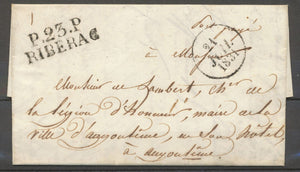 P.23.P
RIBERAC
Port payé
A Monsieur
21
JUIL.
Monsieur de Lambert, ch.er de
la légion d'Honneur, maire de la
ville d'angoulême, en son hôtel,
à angoulême.